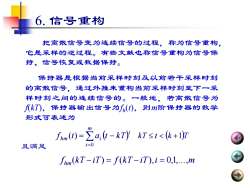 6. 信号重构
把离散信号变为连续信号的过程，称为信号重构，
它是采样的逆过程。有些文献也称信号重构为信号保
持、信号恢复或数据保持。
保持器是根据当前采样时刻及以前若干采样时刻
的离散信号，通过外推来重构当前采样时刻至下一采
样时刻之间的连续信号的。一般地，若离散信号为
f(kT)，保持器输出信号为fₕ(t)，则m阶保持器的数学
形式可表述为
f_{hm}(t) = \sum_{i=0}^{m} a_i (t - kT)^i  kT ≤ t < (k+1)T
且满足
f_{hm}(kT - iT) = f(kT - iT), i = 0,1,...,m